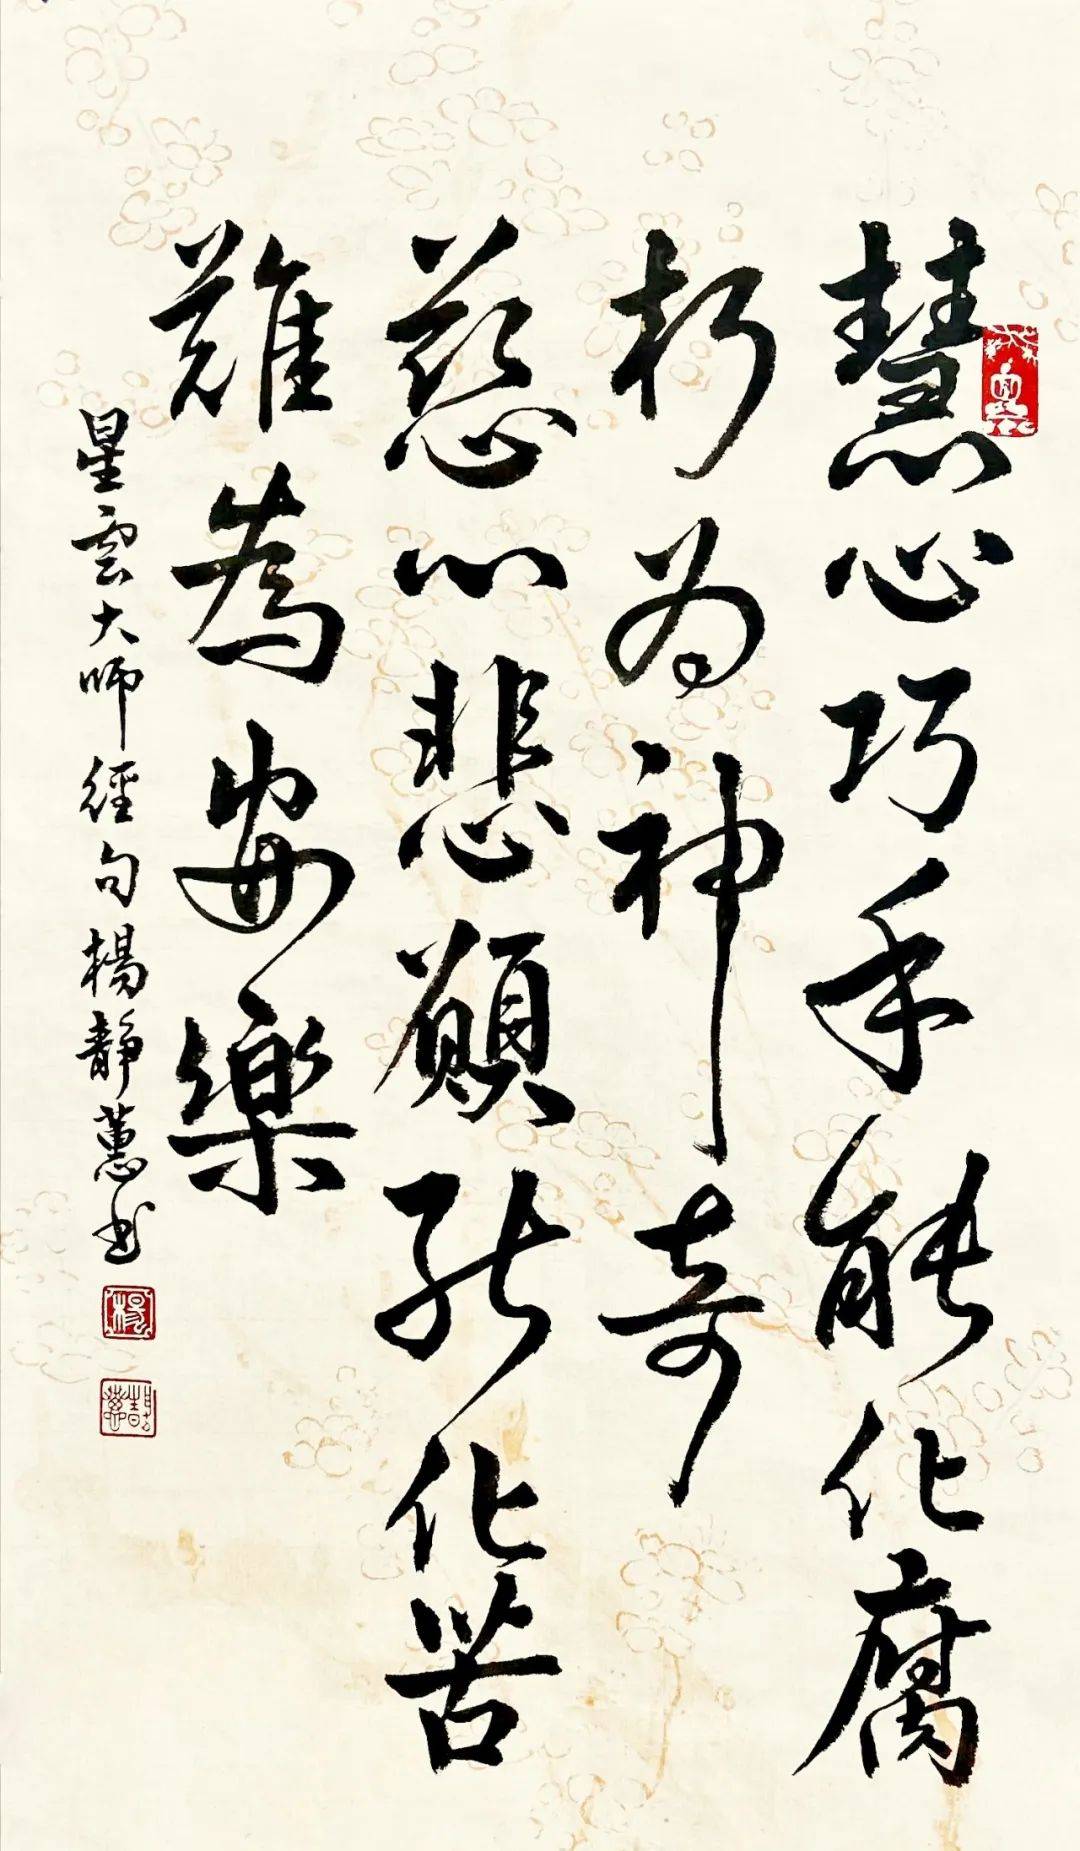 慧心巧手能化腐
朽为神奇
慈心悲願能化苦
難為安樂
星雲大师經句楊静蕙书
楊